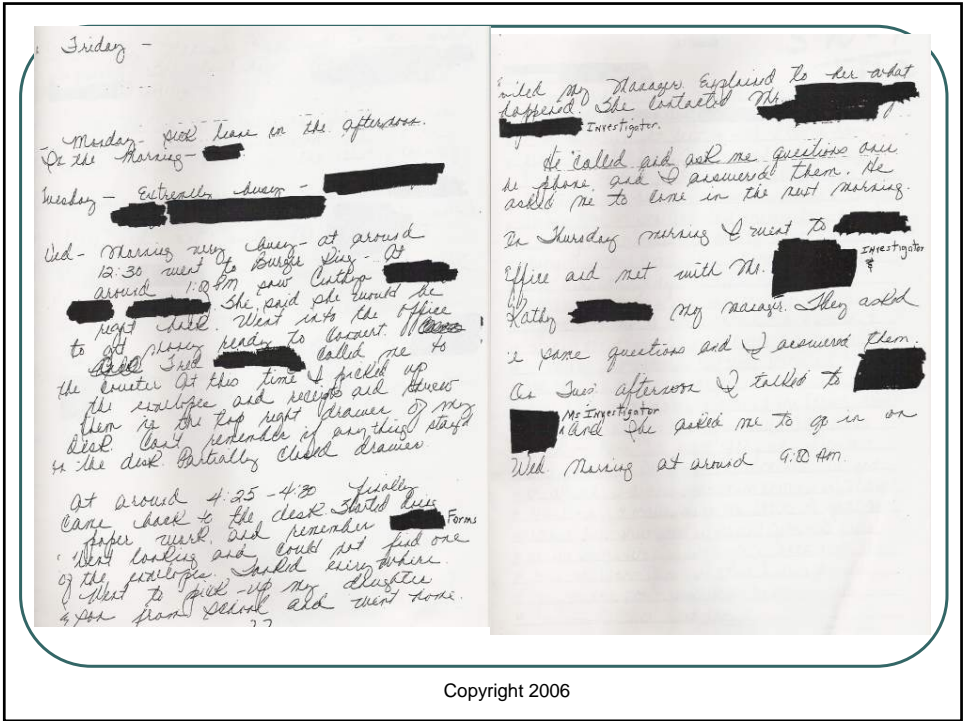 Friday -
Monday - sick leave in the afternoon.
In the Morning -
Tuesday - Extremally busy -
Wed - Morning very busy - at around
12:30 went to Burger King - At
around 1:00 PM saw Cinthya
She said she would be
right back. Went into the office
to get money ready to convert.
and Fred called me to
the counter At this time I picked up
the envelopes and receipts and threw
them in the top right drawer of my
desk. Can't remember if anything stay'd
in the desk. Partially closed drawer.
At around 4:25 - 4:30 finally
came back to the desk. Started doing
paper work, and remember Forms
Went looking and could not find one
of the envelopes. Looked everywhere.
Went to pick-up my daughter
& son from school and went home.
my Manager. Explained to her what
happened She contacted Mr.
Investigator.
He called and ask me questions over
he phone, and I answered them. He
asked me to come in the next morning.
On Thursday morning I went to
Office and met with Mr. Investigator
&
Kathy my manager. They asked
e same questions and I answered them.
On Tues. afternoon I talked to
Ms Investigator
And she asked me to go in on
Wed. Morning at around 9:00 AM.
Copyright 2006